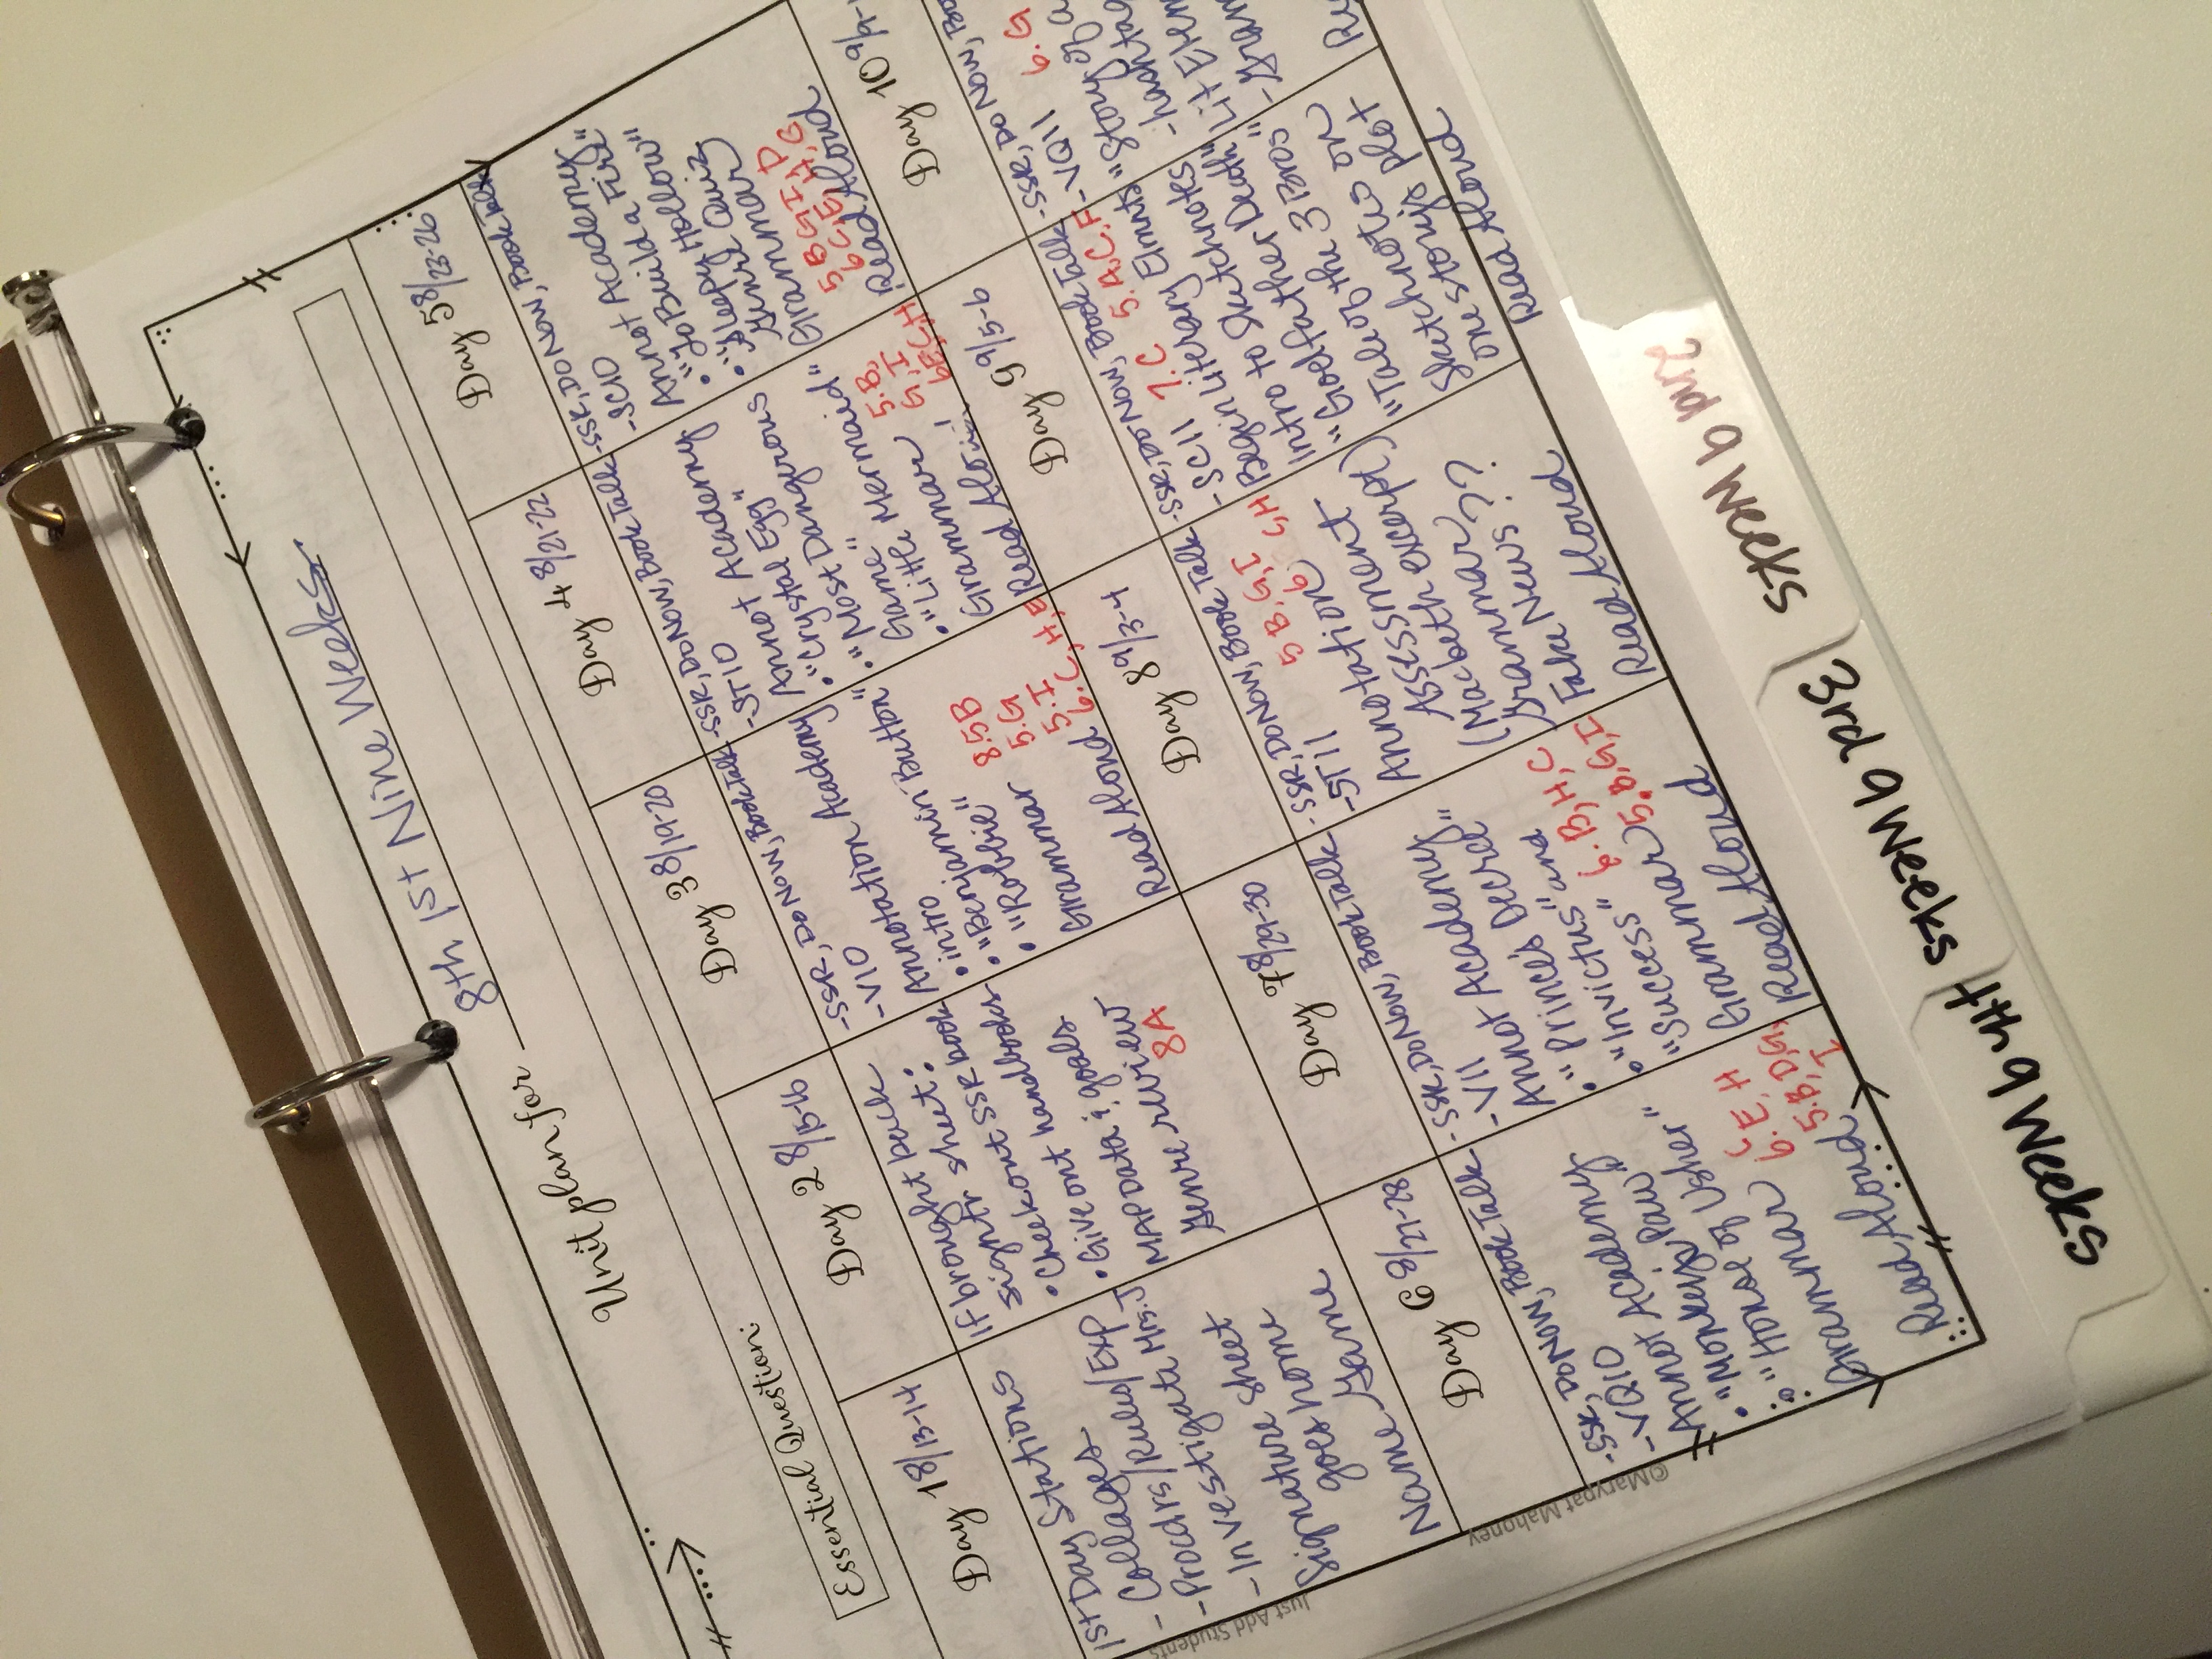 Unit plan for 8th 1st Nine Weeks
Essential Question:
Day 1 8/13-14
1st Day Stations
- Collages
- Procdrs/Rules/Exp
- Investigate Mrs. J
- Signature sheet
goes home
Name Game
Day 2 8/15-16
If brought back
signatr sheet:
• Check out SSR book
• Give out handbooks
MAP Data & goals
Genre review
8A
Day 3 8/19-20
-SSR, DO NOW, Book Talk
-V10
Annotation Academy
• intro
• "Benjamin Button"
• "Robbie" 8.5B
Grammar 5.G
5.I
Read Aloud 6.C, H, E
Day 4 8/21-22
-SSR, DO NOW, Book Talk
-ST10
Annot Academy
• "Crystal Egg"
• "Most Dangerous
Game"
• "Little Mermaid"
Grammar 5.B,
G, I
Read Aloud 6E, C, H
Day 5 8/23-26
-SSR, DO NOW, Book Talk
-SC10
Annot Academy
• "To Build a Fire"
• "Sleepy Hollow"
Genre Quiz
Grammar
5 B G I, D
6 C, E, H, G
Read Aloud
Day 6 8/27-28
-SSR, DO NOW, Book Talk
-VQ10
Annot Academy
• "Monkey's Paw"
• "House of Usher"
Grammar
6. E, H
5.B, D, G,
I
Read Aloud
Day 7 8/29-30
-SSR, DO NOW, Book Talk
-V11
Annot Academy
• "Prince's Decree"
• "Invictus" and
"Success" 6. B, H, C
Grammar 5.B, G, I
Read Aloud
Day 8 9/3-4
-SSR, DO NOW, Book Talk
-ST11 5 B, G, I
Annotation 6 C, H
Assessment
(Macbeth excerpt)
Grammar??
Fake News?
Read Aloud
Day 9 9/5-6
-SSR, DO NOW, Book Talk
-SC11 7.C 5.A, C, F
Begin Literary Elmnts
Intro to Sketchnotes
"Godfather Death"
"Tale of the 3 Bros"
Sketchnotes on
one story's plot
Read Aloud
Day 10 9/9-
-SSR, DO NOW,
-VQ11 6.G
"Story of a
-hashtag
Lit Elem
-Gram
2nd 9 weeks
3rd 9 weeks
4th 9 weeks
Just Add Students
©Marypat Mahoney